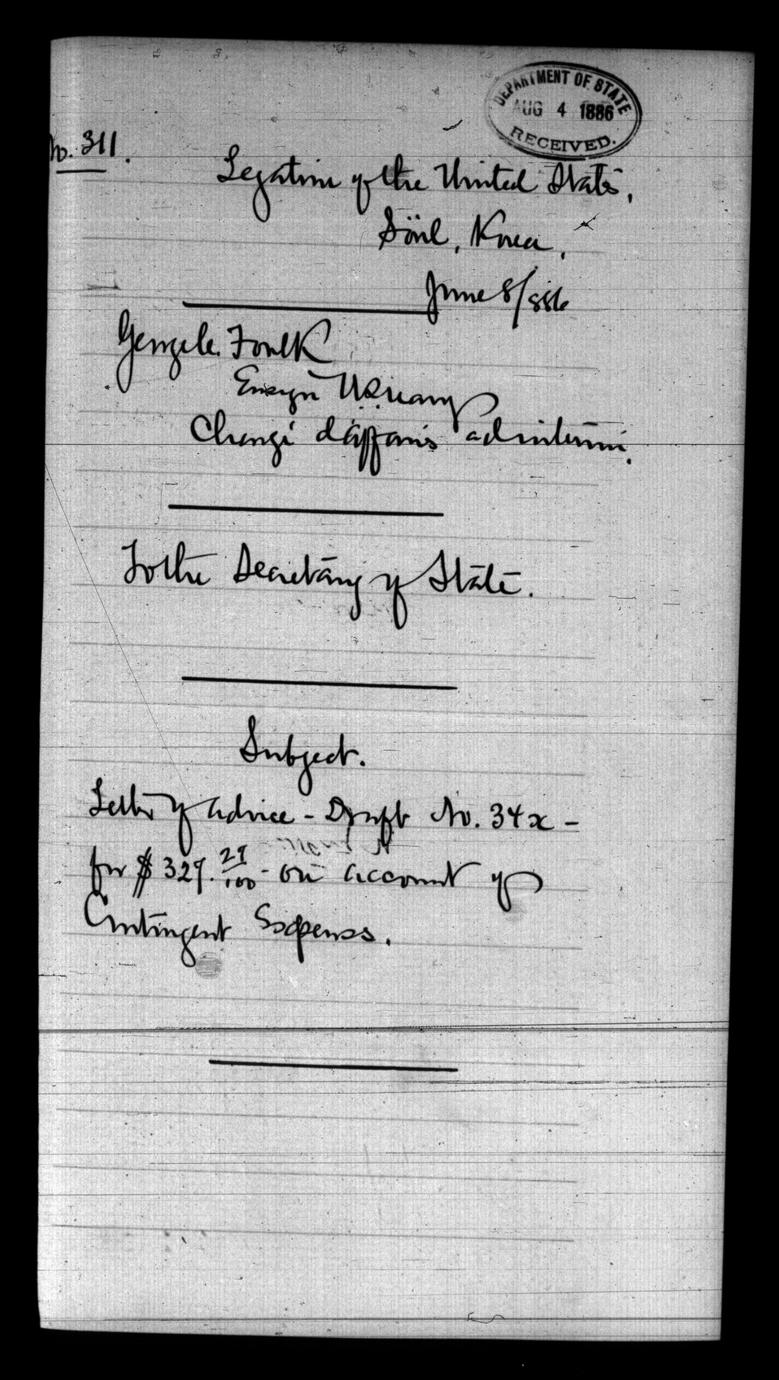 DEPARTMENT OF STATE
AUG 4 1886
RECEIVED.
No. 311.
Legation of the United States,
Söul, Korea,
June 8/886
George C. Foulk
Ensign U.S. Navy
Chargé d'affaires ad interim.
To the Secretary of State.
Subject.
Letter of advice - Draft No. 34x -
for $ 329. 29/100 - on account of
Contingent Expenses.